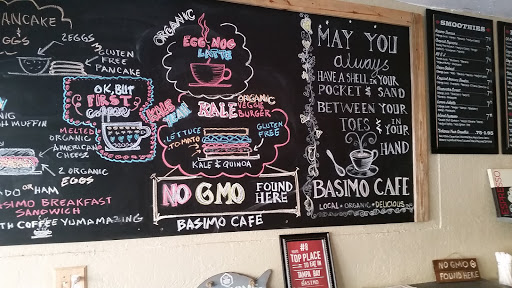 PANCAKE
EGGS
2 EGGS
GLUTEN
FREE
PANCAKE
OK, BUT
FIRST
coffee
MUFFIN
MELTED
ORGANIC
AMERICAN
CHEESE
2 ORGANIC
EGGS
OR HAM
BASIMO BREAKFAST
SANDWICH
WITH COFFEE YUMAMAZING
ORGANIC
EGG-NOG
LATTE
KALE
KALE
ORGANIC
VEGGIE
BURGER
LETTUCE
TOMATO
GLUTEN
FREE
KALE & QUINOA
NO GMO FOUND
HERE
BASIMO CAFE
MAY YOU
always
HAVE A SHELL IN YOUR
POCKET & SAND
BETWEEN YOUR
TOES & IN YOUR
HAND
BASIMO CAFE
LOCAL • ORGANIC • DELICIOUS
SMOOTHIES
#8
TOP PLACE
TO EAT IN
TAMPA BAY
BASIMO
NO GMO
FOUND HERE